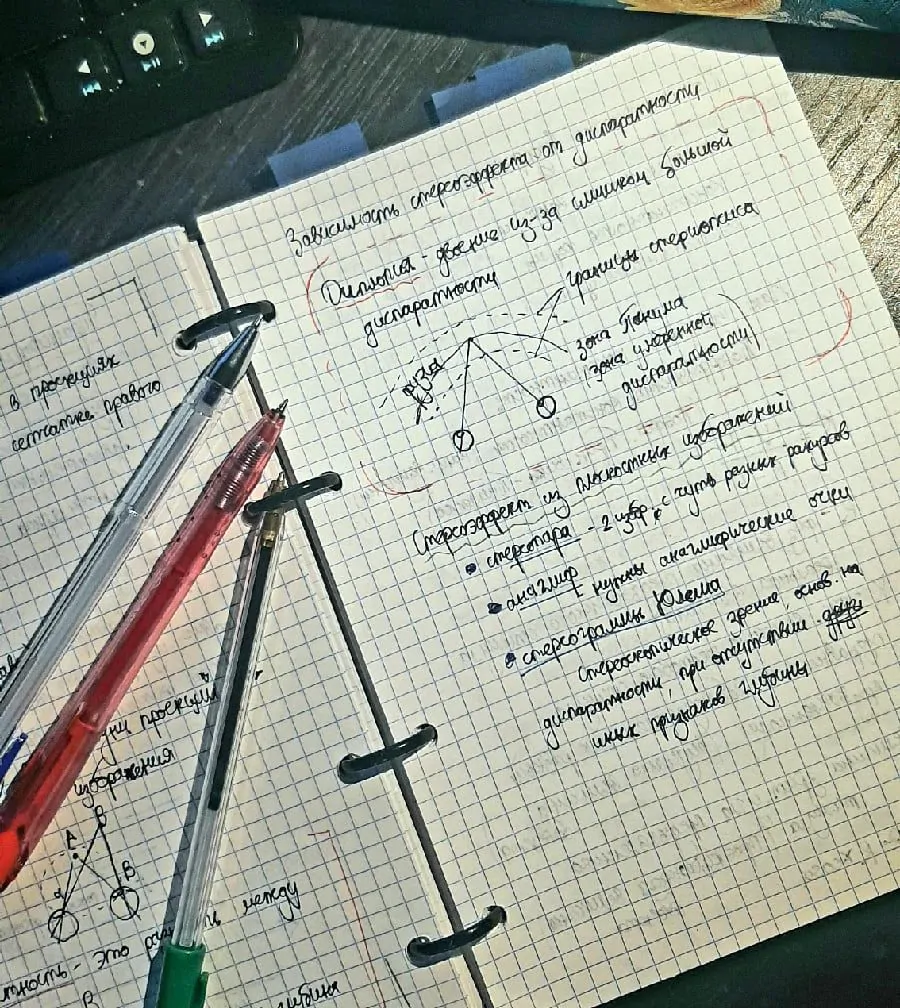 в проекциях
сетчатке правого
проекций
изображения
A
B
B
это
между
глубина
Зависимость стереоэффекта от диспаратности
Диплопия - двоение из-за слишком большой
диспаратности
границы
зона Панума
(зона умеренной
диспаратности)
Стереоэффект из плоскостных изображений
• стереопара - 2 избр. с чуть разных ракурсов
• анаглиф - нужны анаглифические очки
• стереограммы Юлеша
стереоскопическое зрение, основ. на
диспаратности, при отсутствии
иных признаков глубины